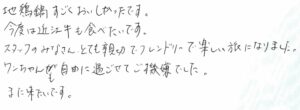 地鶏鍋すごくおいしかったです。
今度は近江牛も食べたいです。
スタッフのみなさんとても親切でフレンドリーで楽しい旅になりました。
ワンちゃんが自由に過ごせてご機嫌でした。
また来たいです。